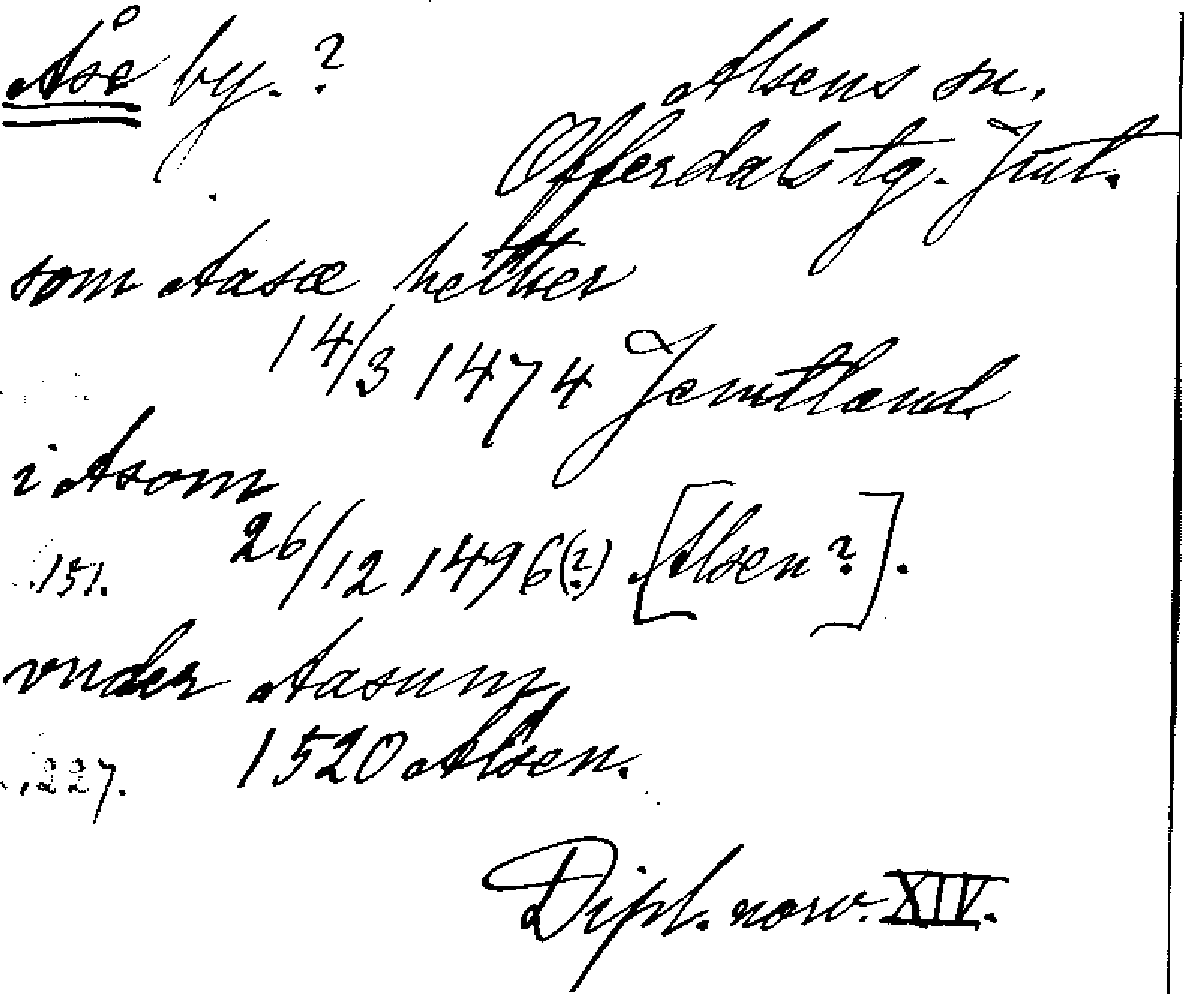 Åse by.? Alsens sn.
Offerdals tg. Jmt.
som Aasæ hether
14/3 1474 Jemtland
i Asom
151. 26/12 1496(?) [Alsen?].
vnder Aasum
227. 1520 Alsen.
Dipl. norv. XIV.